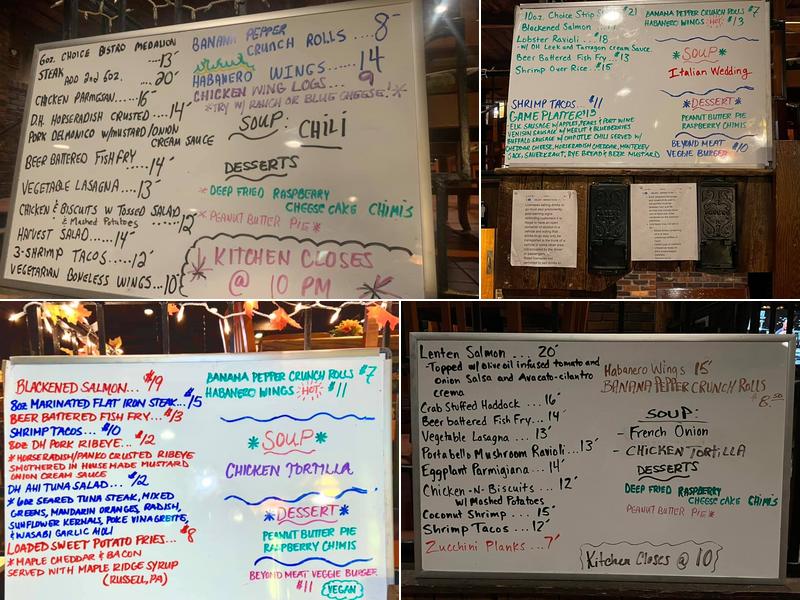 6oz. CHOICE BISTRO MEDALION
STEAK ...13-
ADD 2nd 6oz. ...20-
CHICKEN PARMGSAN.....16-
D.H. HORSERADISH CRUSTED ....14-
PORK DELMONICO W/MUSTARD/ONION
CREAM SAUCE
BEER BATTERED FISHFRY ...14-
VEGETABLE LASAGNA...13-
CHICKEN & BISCUITS W TOSSED SALAD
& Mashed Potatoes 12-
HARVEST SALAD...14-
3-SHRIMP TACOS....12-
VEGETARIAN BONELESS WINGS...10-
BANANA PEPPER
CRUNCH ROLLS ... 8-
HABANERO WINGS.... 14
CHICKEN WING LOGS... 9
*TRY W/ RANCH OR BLUE CHEESE!*
SOUP: CHILI
DESSERTS
*DEEP FRIED RASPBERRY
CHEESE CAKE CHIMIS
*PEANUT BUTTER PIE*
KITCHEN CLOSES
@ 10 PM
10oz. Choice Strip $21
Blackened Salmon
Lobster Ravioli...$18
-W/ DH Leek and Tarragon Cream Sauce
Beer Battered Fish Fry...$13
Shrimp Over Rice...$15
SHRIMP TACOS...$11
GAME PLATTER
ELK SAUSAGE W/APPLES, PEARS & PORT WINE
VENISON SAUSAGE W/ MERLOT & BLUEBERRIES
BUFFALO SAUSAGE W/ CHIPOTLE CHILI SERVED W/
CHEDDAR CHEESE, HORSERADISH CHEDDAR, MONTEREY
JACK, SAUERKRAUT, RYE BREAD & BEER MUSTARD
BANANA PEPPER CRUNCH ROLLS $7
HABANERO WINGS HOT $13
*SOUP*
Italian Wedding
*DESSERT*
PEANUT BUTTER PIE
RASPBERRY CHIMIS
BEYOND MEAT
VEGGIE BURGER $10
BLACKENED SALMON... $19
8oz MARINATED FLAT IRON STEAK...$15
BEER BATTERED FISH FRY...$13
SHRIMP TACOS...$10
8oz DH PORK RIBEYE...$12
*HORSERADISH/PANKO CRUSTED RIBEYE
SMOTHERED IN HOUSE MADE MUSTARD
ONION CREAM SAUCE
DH AHI TUNA SALAD...$12
*6oz SEARED TUNA STEAK, MIXED
GREENS, MANDARIN ORANGES, RADISH,
SUNFLOWER KERNALS, POKE VINAGRETTE,
&WASABI GARLIC AIOLI
LOADED SWEET POTATO FRIES...$8
*MAPLE CHEDDAR & BACON
SERVED WITH MAPLE RIDGE SYRUP
(RUSSELL,PA)
BANANA PEPPER CRUNCH ROLLS $7
HABANERO WINGS HOT $11
*SOUP*
CHICKEN TORTILLA
*DESSERT*
PEANUT BUTTER PIE
RASPBERRY CHIMIS
BEYOND MEAT VEGGIE BURGER
$11 VEGAN
Lenten Salmon ... 20-
-Topped w/ Olive oil infused tomato and
onion Salsa and Avacato-cilantro
crema
Crab Stuffed Haddock...16-
Beer battered Fish Fry...14-
Vegetable Lasagna ... 13-
Portabello Mushroom Ravioli...13-
Eggplant Parmigiana...14-
Chicken-N-Biscuits... 12-
w/ Mashed Potatoes
Coconut Shrimp ... 15-
Shrimp Tacos...12-
Zucchini Planks...7-
Habanero Wings 15-
BANANA PEPPER CRUNCH ROLLS
$8.50
SOUP:
- French Onion
- CHICKEN TORTILLA
DESSERTS
DEEP FRIED RASPBERRY
CHEESE CAKE CHIMIS
PEANUT BUTTER PIE*
Kitchen Closes @ 10